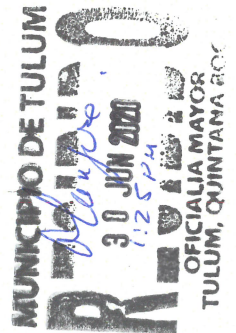 MUNICIPIO DE TULUM
30 JUN 2020
1:25 PM
OFICIALIA MAYOR
TULUM, QUINTANA ROO